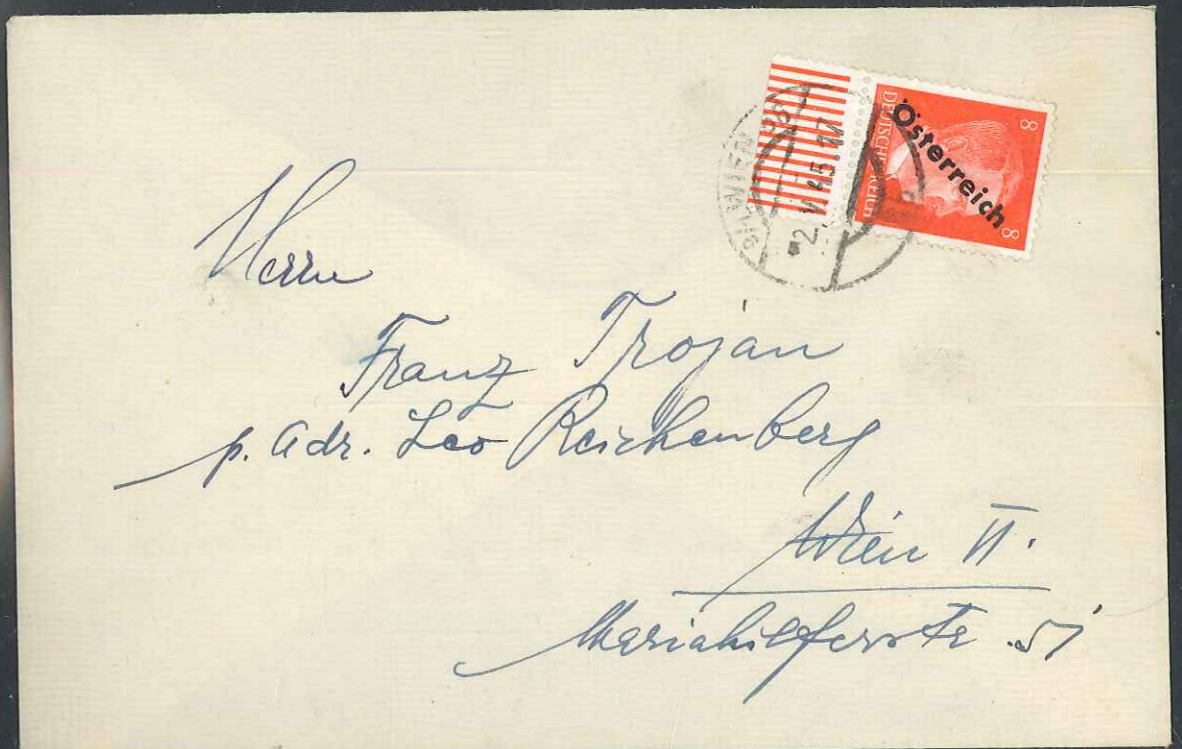 8
DEUTSCHES REICH
8
Österreich
WIEN
2.V.45.17
Herrn
Franz Trojan
p. Adr. Leo Reichenberg
Wien VI.
Mariahilferstr. 51